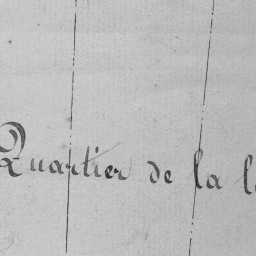 Quartier de la